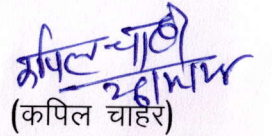 कपिल चाहर
(कपिल चाहर)